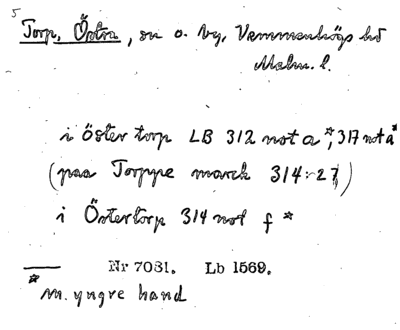 5
Torp, Östra, sn o. by, Vemmenhögs hd
Malm. l.
i öster torp LB 312 not a*, 317 not a*
(paa Torppe marck 314:27)
i Östertorp 314 not f *
Nr 7031. Lb 1569.
* m. yngre hand